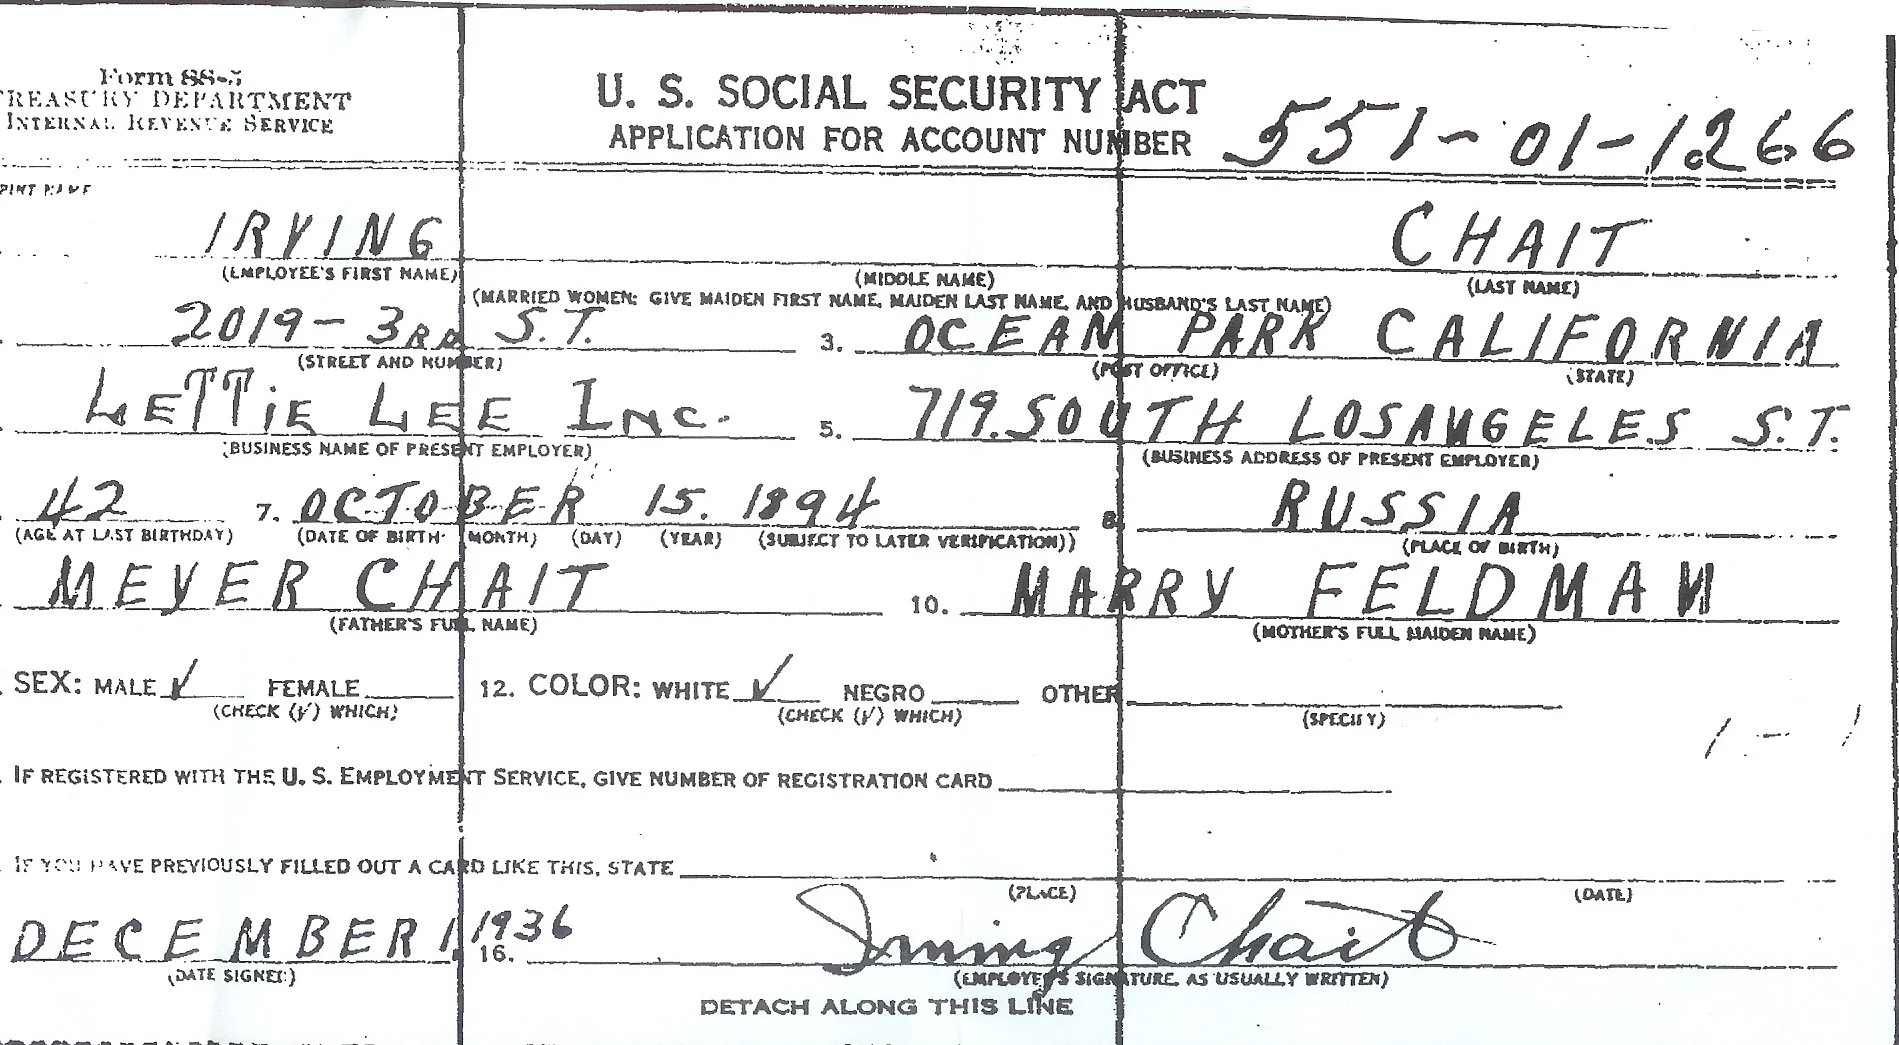 Form SS-5
TREASURY DEPARTMENT
INTERNAL REVENUE SERVICE
U. S. SOCIAL SECURITY ACT
APPLICATION FOR ACCOUNT NUMBER
551-01-1266
PRINT NAME
IRVING CHAIT
(EMPLOYEE'S FIRST NAME) (MIDDLE NAME) (LAST NAME)
(MARRIED WOMEN: GIVE MAIDEN FIRST NAME, MAIDEN LAST NAME, AND HUSBAND'S LAST NAME)
2019 - 3RD S.T. 3. OCEAN PARK CALIFORNIA
(STREET AND NUMBER) (POST OFFICE) (STATE)
LETTiE LEE INC. 5. 719. SOUTH LOSANGELES S.T.
(BUSINESS NAME OF PRESENT EMPLOYER) (BUSINESS ADDRESS OF PRESENT EMPLOYER)
42 7. OCTOBER 15. 1894 8. RUSSIA
(AGE AT LAST BIRTHDAY) (DATE OF BIRTH: (MONTH) (DAY) (YEAR) (SUBJECT TO LATER VERIFICATION)) (PLACE OF BIRTH)
MEYER CHAIT 10. MARRY FELDMAN
(FATHER'S FULL NAME) (MOTHER'S FULL MAIDEN NAME)
SEX: MALE ✓ FEMALE 12. COLOR: WHITE ✓ NEGRO OTHER
(CHECK (✓) WHICH) (CHECK (✓) WHICH) (SPECIFY)
IF REGISTERED WITH THE U. S. EMPLOYMENT SERVICE, GIVE NUMBER OF REGISTRATION CARD
IF YOU HAVE PREVIOUSLY FILLED OUT A CARD LIKE THIS, STATE
(PLACE) (DATE)
DECEMBER 1. 1936 16. Irving Chait
(DATE SIGNED) (EMPLOYEE'S SIGNATURE, AS USUALLY WRITTEN)
DETACH ALONG THIS LINE